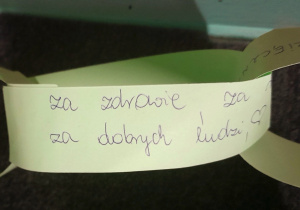 za zdrowie za
za dobrych ludzi,